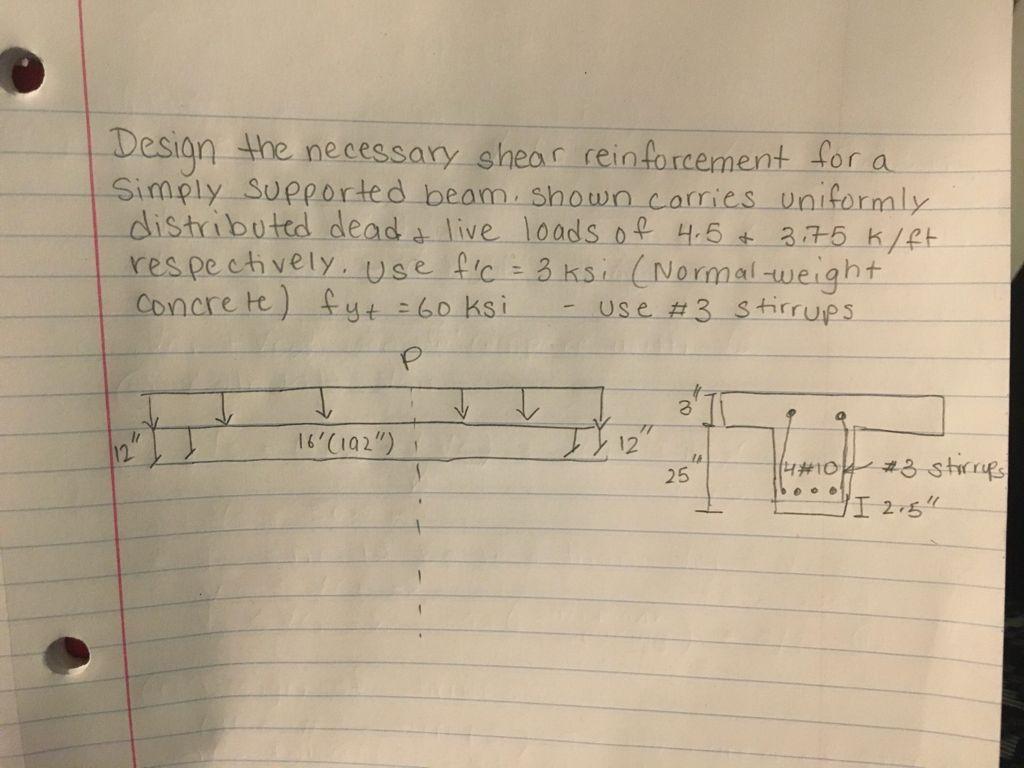 Design the necessary shear reinforcement for a
simply supported beam. shown carries uniformly
distributed dead & live loads of 4.5 & 3.75 K/ft
respectively. Use f'c = 3 ksi (Normal-weight
concrete) fyt = 60 ksi - use #3 stirrups
P
12" 16' (192") 12"
3"
25" 4#10 #3 stirrups
2.5"